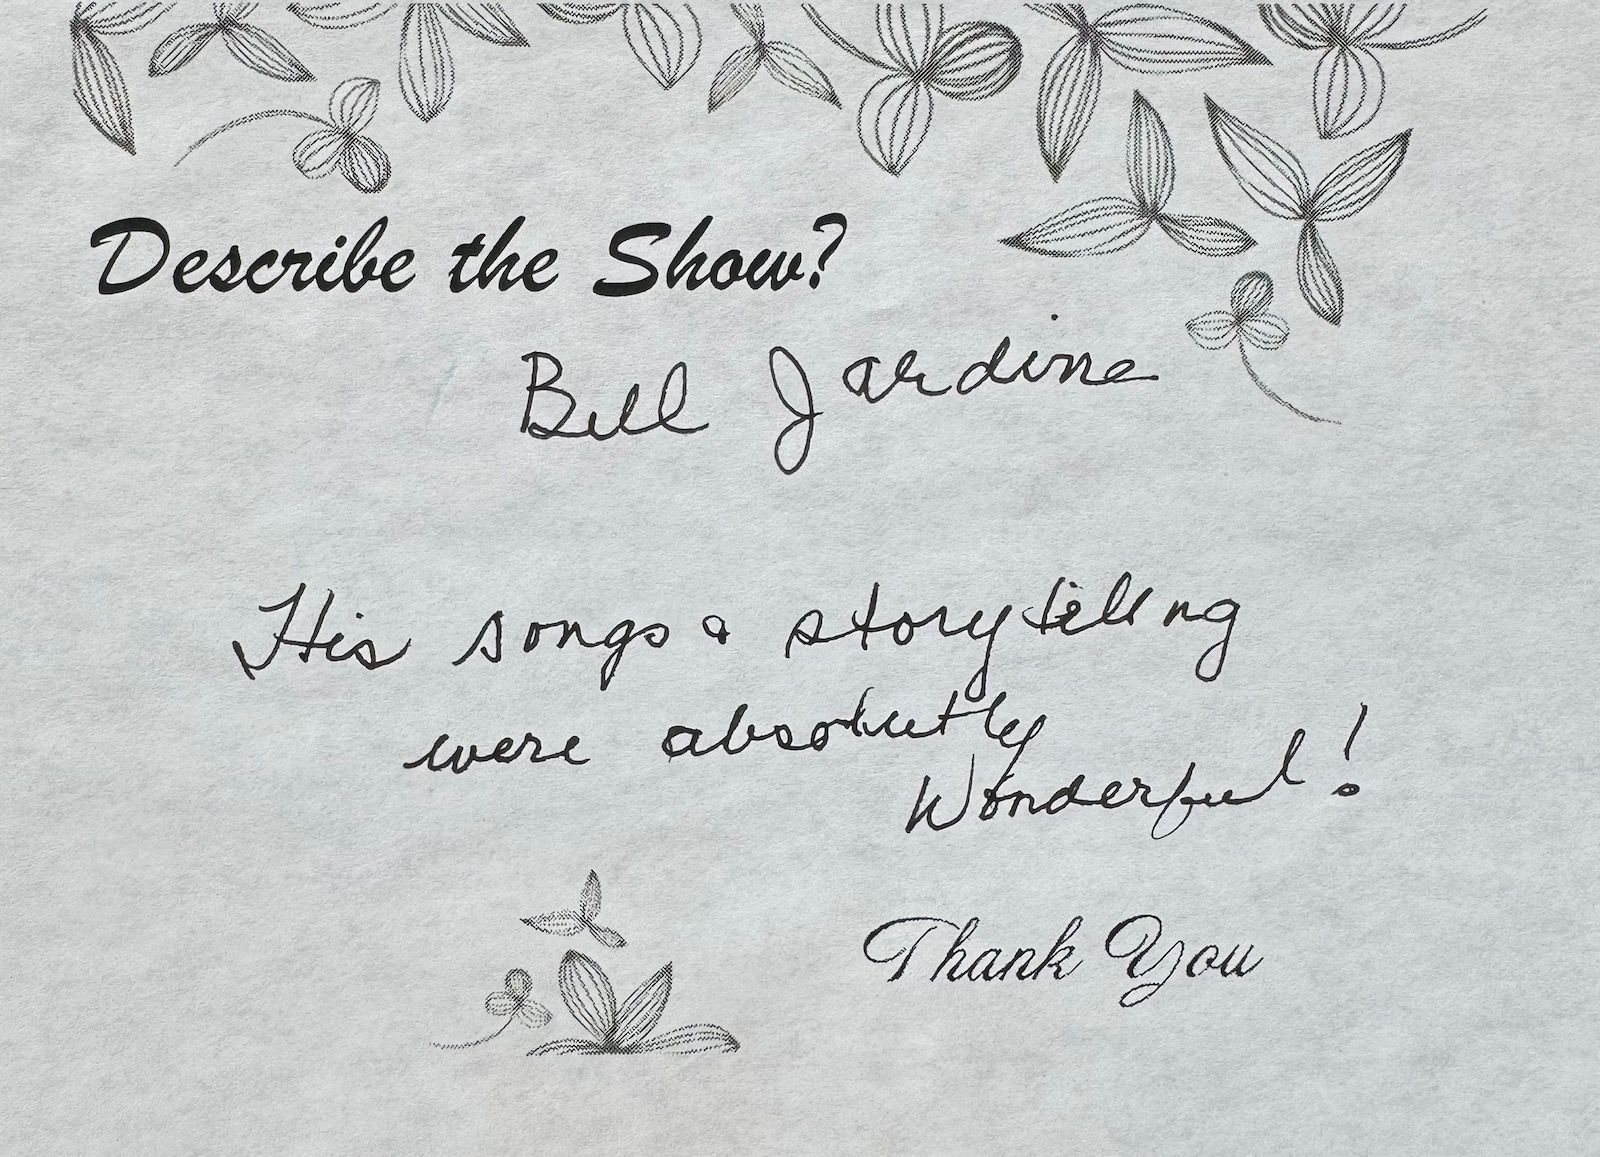 Describe the Show?
Bill Jardine
His songs & storytelling
were absolutly
Wonderful!
Thank You